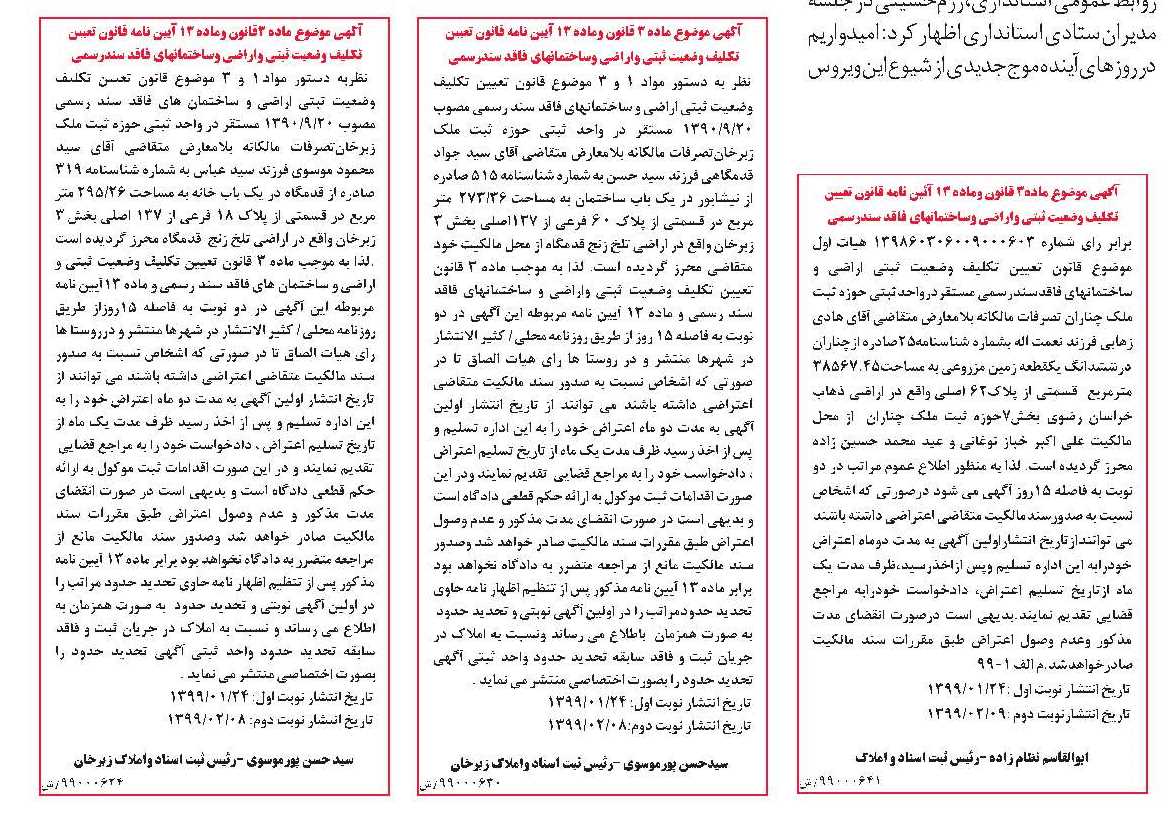 روابط عمومی استانداری، رزم حسینی در جلسه
مدیران ستادی استانداری اظهار کرد: امیدواریم
در روزهای آینده موج جدیدی از شیوع این ویروس
آگهی موضوع ماده۳ قانون وماده ۱۳ آئین نامه قانون تعیین
تکلیف وضعیت ثبتی واراضی وساختمانهای فاقد سندرسمی
برابر رای شماره ۱۳۹۸۶۰۳۰۶۰۰۹۰۰۰۶۰۳ هیات اول
موضوع قانون تعیین تکلیف وضعیت ثبتی اراضی و
ساختمانهای فاقدسندرسمی مستقردرواحد ثبتی حوزه ثبت
ملک چناران تصرفات مالکانه بلامعارض متقاضی آقای هادی
زهابی فرزند نعمت اله بشماره شناسنامه۲۵صادره ازچناران
درششدانگ یکقطعه زمین مزروعی به مساحت۳۸۵۶۷.۴۵
مترمربع قسمتی از پلاک۶۲ اصلی واقع در اراضی ذهاب
خراسان رضوی بخش۷حوزه ثبت ملک چناران از محل
مالکیت علی اکبر خباز نوغانی و عید محمد حسین زاده
محرز گردیده است. لذا به منظور اطلاع عموم مراتب در دو
نوبت به فاصله ۱۵روز آگهی می شود درصورتی که اشخاص
نسبت به صدورسند مالکیت متقاضی اعتراضی داشته باشند
می توانندازتاریخ انتشاراولین آگهی به مدت دوماه اعتراض
خودرابه این اداره تسلیم وپس ازاخذرسید،ظرف مدت یک
ماه ازتاریخ تسلیم اعتراض، دادخواست خودرابه مراجع
قضایی تقدیم نمایند.بدیهی است درصورت انقضای مدت
مذکور وعدم وصول اعتراض طبق مقررات سند مالکیت
صادرخواهدشد.م الف ۱-۹۹
تاریخ انتشار نوبت اول :۱۳۹۹/۰۱/۲۴
تاریخ انتشارنوبت دوم :۱۳۹۹/۰۲/۰۹
ابوالقاسم نظام زاده -رئیس ثبت اسناد و املاک
۹۹۰۰۰۶۴۱/ ش
آگهی موضوع ماده ۳ قانون وماده ۱۳ آیین نامه قانون تعیین
تکلیف وضعیت ثبتی واراضی وساختمانهای فاقد سندرسمی
نظر به دستور مواد ۱ و ۳ موضوع قانون تعیین تکلیف
وضعیت ثبتی اراضی و ساختمانهای فاقد سند رسمی مصوب
۱۳۹۰/۹/۲۰ مستقر در واحد ثبتی حوزه ثبت ملک
زبرخان‌تصرفات مالکانه بلامعارض متقاضی آقای سید جواد
قدمگاهی فرزند سید حسن به شماره شناسنامه ۵۱۵ صادره
از نیشابور در یک باب ساختمان به مساحت ۲۷۳/۳۶ متر
مربع در قسمتی از پلاک ۶۰ فرعی از ۱۳۷اصلی بخش ۳
زبرخان واقع در اراضی تلخ رنج قدمگاه از محل مالکیت خود
متقاضی محرز گردیده است. لذا به موجب ماده ۳ قانون
تعیین تکلیف وضعیت ثبتی واراضی و ساختمانهای فاقد
سند رسمی و ماده ۱۳ آیین نامه مربوطه این آگهی در دو
نوبت به فاصله ۱۵ روز از طریق روزنامه محلی / کثیر الانتشار
در شهرها منتشر و در روستا ها رای هیات الصاق تا در
صورتی که اشخاص نسبت به صدور سند مالکیت متقاضی
اعتراضی داشته باشند می توانند از تاریخ انتشار اولین
آگهی به مدت دو ماه اعتراض خود را به این اداره تسلیم و
پس از اخذ رسید ظرف مدت یک ماه از تاریخ تسلیم اعتراض
، دادخواست خود را به مراجع قضایی تقدیم نمایند ودر این
صورت اقدامات ثبت موکول به ارائه حکم قطعی دادگاه است
و بدیهی است در صورت انقضای مدت مذکور و عدم وصول
اعتراض طبق مقررات سند مالکیت صادر خواهد شد وصدور
سند مالکیت مانع از مراجعه متضرر به دادگاه نخواهد بود
برابر ماده ۱۳ آیین نامه مذکور پس از تنظیم اظهار نامه حاوی
تحدید حدودمراتب را در اولین آگهی نوبتی و تحدید حدود
به صورت همزمان باطلاع می رساند ونسبت به املاک در
جریان ثبت و فاقد سابقه تحدید حدود واحد ثبتی آگهی
تحدید حدود را بصورت اختصاصی منتشر می نماید .
تاریخ انتشار نوبت اول: ۱۳۹۹/۰۱/۲۴
تاریخ انتشار نوبت دوم:۱۳۹۹/۰۲/۰۸
سیدحسن پورموسوی -رئیس ثبت اسناد واملاک زبرخان
۹۹۰۰۰۶۳۰/ ش
آگهی موضوع ماده ۳قانون وماده ۱۳ آیین نامه قانون تعیین
تکلیف وضعیت ثبتی واراضی وساختمانهای فاقد سندرسمی
نظربه دستور مواد ۱ و ۳ موضوع قانون تعیین تکلیف
وضعیت ثبتی اراضی و ساختمان های فاقد سند رسمی
مصوب ۱۳۹۰/۹/۲۰ مستقر در واحد ثبتی حوزه ثبت ملک
زبرخان‌تصرفات مالکانه بلامعارض متقاضی آقای سید
محمود موسوی فرزند سید عباس به شماره شناسنامه ۳۱۹
صادره از قدمگاه در یک باب خانه به مساحت ۲۹۵/۲۶ متر
مربع در قسمتی از پلاک ۱۸ فرعی از ۱۳۷ اصلی بخش ۳
زبرخان واقع در اراضی تلخ زنج قدمگاه محرز گردیده است
.لذا به موجب ماده ۳ قانون تعیین تکلیف وضعیت ثبتی و
اراضی و ساختمان های فاقد سند رسمی و ماده ۱۳آیین نامه
مربوطه این آگهی در دو نوبت به فاصله ۱۵روزاز طریق
روزنامه محلی/ کثیر الانتشار در شهرها منتشر و درروستا ها
رای هیات الصاق تا در صورتی که اشخاص نسبت به صدور
سند مالکیت متقاضی اعتراضی داشته باشند می توانند از
تاریخ انتشار اولین آگهی به مدت دو ماه اعتراض خود را به
این اداره تسلیم و پس از اخذ رسید ظرف مدت یک ماه از
تاریخ تسلیم اعتراض ، دادخواست خود را به مراجع قضایی
تقدیم نمایند و در این صورت اقدامات ثبت موکول به ارائه
حکم قطعی دادگاه است و بدیهی است در صورت انقضای
مدت مذکور و عدم وصول اعتراض طبق مقررات سند
مالکیت صادر خواهد شد وصدور سند مالکیت مانع از
مراجعه متضرر به دادگاه نخواهد بود برابر ماده ۱۳ آیین نامه
مذکور پس از تنظیم اظهار نامه حاوی تحدید حدود مراتب را
در اولین آگهی نوبتی و تحدید حدود به صورت همزمان به
اطلاع می رساند و نسبت به املاک در جریان ثبت و فاقد
سابقه تحدید حدود واحد ثبتی آگهی تحدید حدود را
بصورت اختصاصی منتشر می نماید .
تاریخ انتشار نوبت اول: ۱۳۹۹/۰۱/۲۴
تاریخ انتشار نوبت دوم: ۱۳۹۹/۰۲/۰۸
سید حسن پورموسوی -رئیس ثبت اسناد واملاک زبرخان
۹۹۰۰۰۶۲۴/ ش